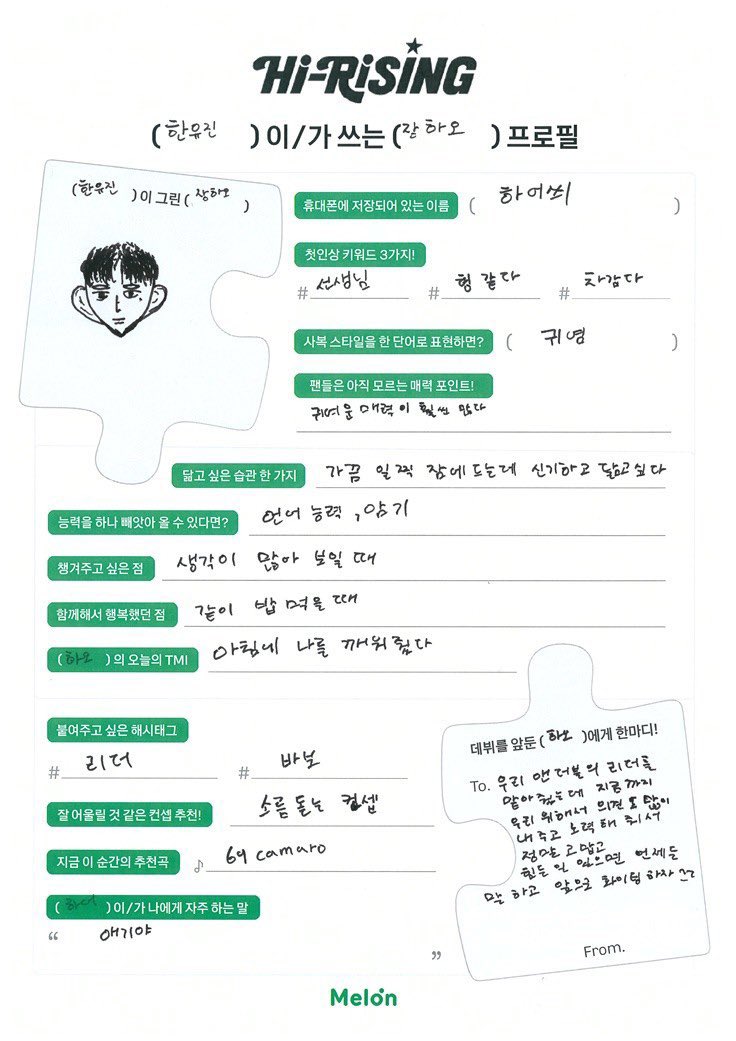 Hi-RiSiNG
( 한유진 ) 이/가 쓰는 ( 장하오 ) 프로필
( 한유진 ) 이 그린 ( 장하오 )
휴대폰에 저장되어 있는 이름 ( 하어쒸 )
첫인상 키워드 3가지!
# 선생님 # 형 같다 # 차갑다
사복 스타일을 한 단어로 표현하면? ( 귀염 )
팬들은 아직 모르는 매력 포인트!
귀여운 매력이 훨씬 많다
닮고 싶은 습관 한 가지 가끔 일찍 잠에 드는데 신기하고 닮고싶다
능력을 하나 빼앗아 올 수 있다면? 언어 능력, 암기
챙겨주고 싶은 점 생각이 많아 보일 때
함께해서 행복했던 점 같이 밥 먹을 때
( 하오 ) 의 오늘의 TMI 아침에 나를 깨워줬다
붙여주고 싶은 해시태그
# 리더 # 바보
잘 어울릴 것 같은 컨셉 추천! 소름 돋는 컨셉
지금 이 순간의 추천곡 ♪ 69 camaro
( 하오 ) 이/가 나에게 자주 하는 말
“ 애기야 ”
데뷔를 앞둔 ( 하오 )에게 한마디!
To. 우리 앤더블의 리더를
맡아줬는데 지금까지
우리 위해서 의견도 많이
내주고 노력해 줘서
정말 고맙고
힘든 일 있으면 언제든
말 하고 앞으로 화이팅 하자
From.
Melon